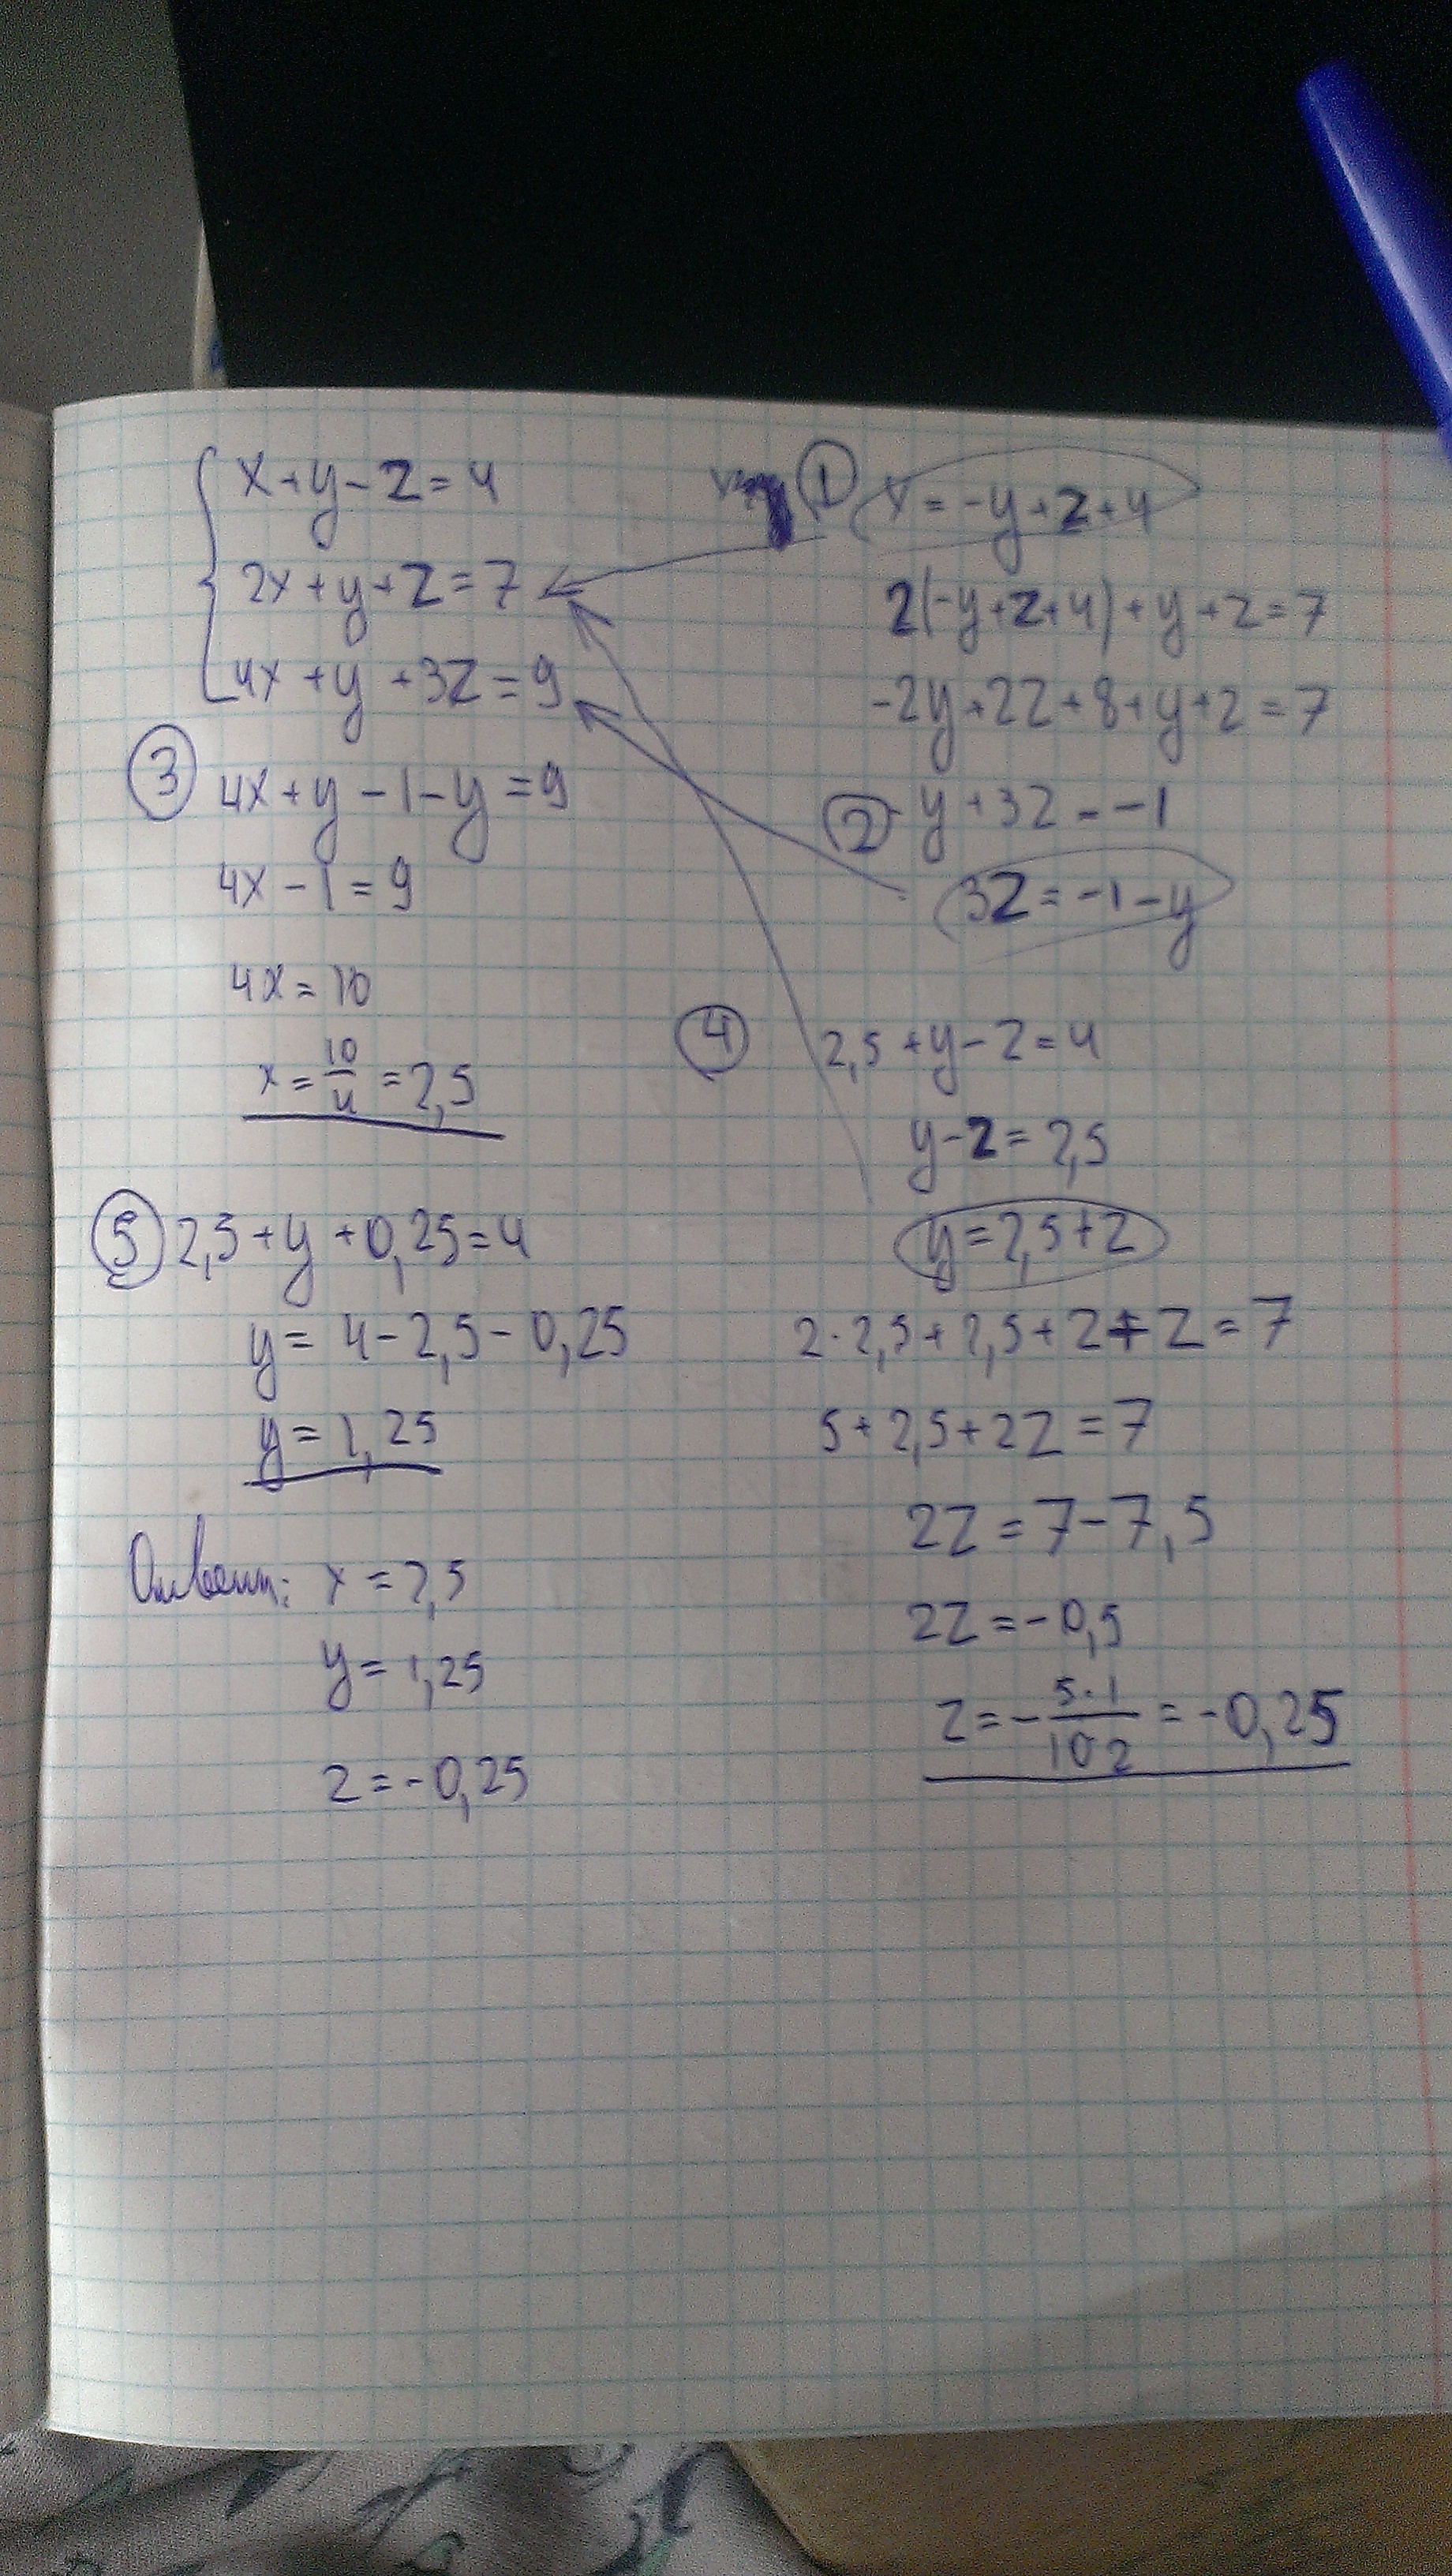 x+y-z=4
2x+y+z=7
4x+y+3z=9
① x=-y+z+4
2(-y+z+4)+y+z=7
-2y+2z+8+y+z=7
② y+3z=-1
3z=-1-y
③ 4x+y-1-y=9
4x-1=9
4x=10
x=10/4=2,5
④ 2,5+y-z=4
y-z=2,5
y=2,5+z
2·2,5+2,5+z+z=7
5+2,5+2z=7
2z=7-7,5
2z=-0,5
z=-5·1/10·2=-0,25
⑤ 2,5+y+0,25=4
y=4-2,5-0,25
y=1,25
Ответ: x=2,5
y=1,25
z=-0,25